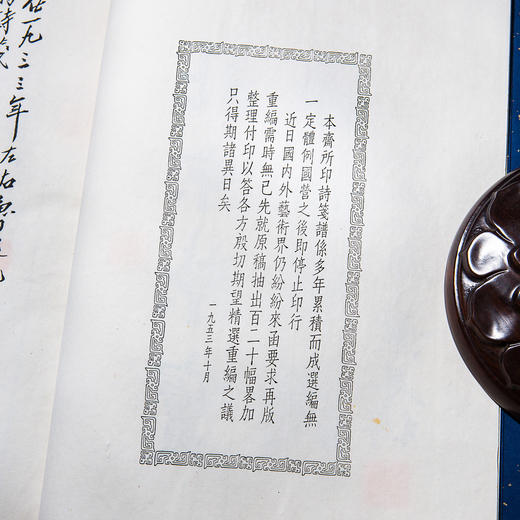 本齋所印詩箋譜係多年累積而成選編無
一定體例國營之後即停止印行
近日國内外藝術界仍紛紛來函要求再版
重編需時無已先就原稿抽出百二十幅畧加
整理付印以答各方殷切期望精選重編之議
只得期諸異日矣
一九五三年十月
一九三三年左右魯迅